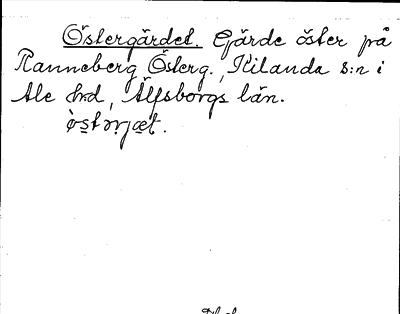 Östergärdet. Gärde öster på
Ranneberg Österg., Kilanda s:n i
Ale hd, Älfsborgs län.